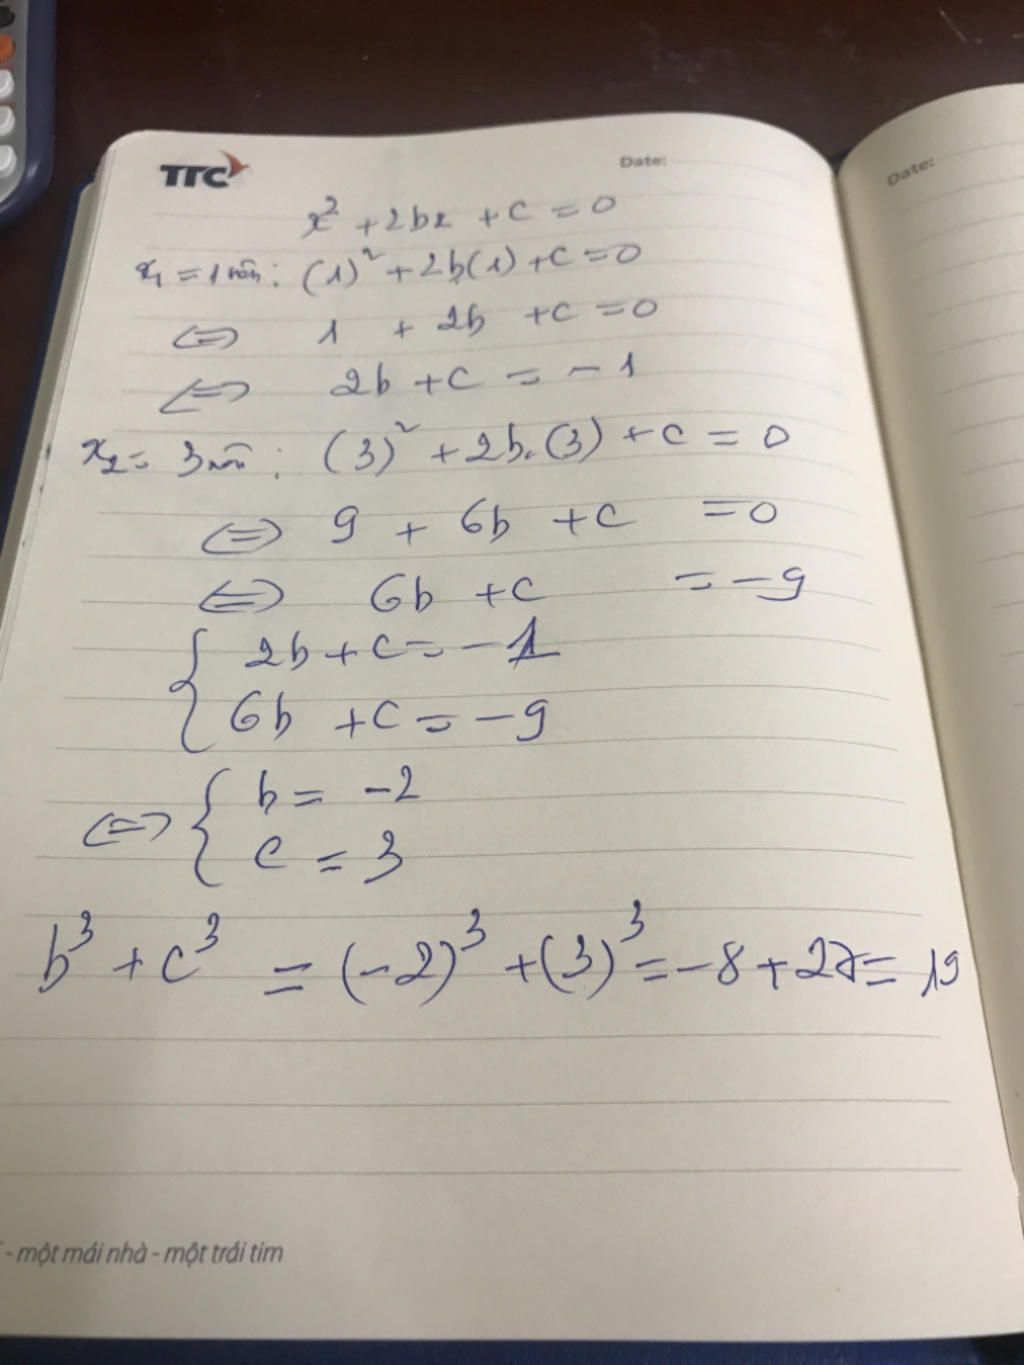 TTC
Date:
Date:
x² + 2bx + c = 0
x₁ = 1 nên: (1)² + 2b(1) + c = 0
⇔ 1 + 2b + c = 0
⇔ 2b + c = -1
x₂ = 3 nên: (3)² + 2b.(3) + c = 0
⇔ 9 + 6b + c = 0
⇔ 6b + c = -9
{ 2b + c = -1
6b + c = -9
⇔ { b = -2
c = 3
b³ + c³ = (-2)³ + (3)³ = -8 + 27 = 19
- một mái nhà - một trái tim